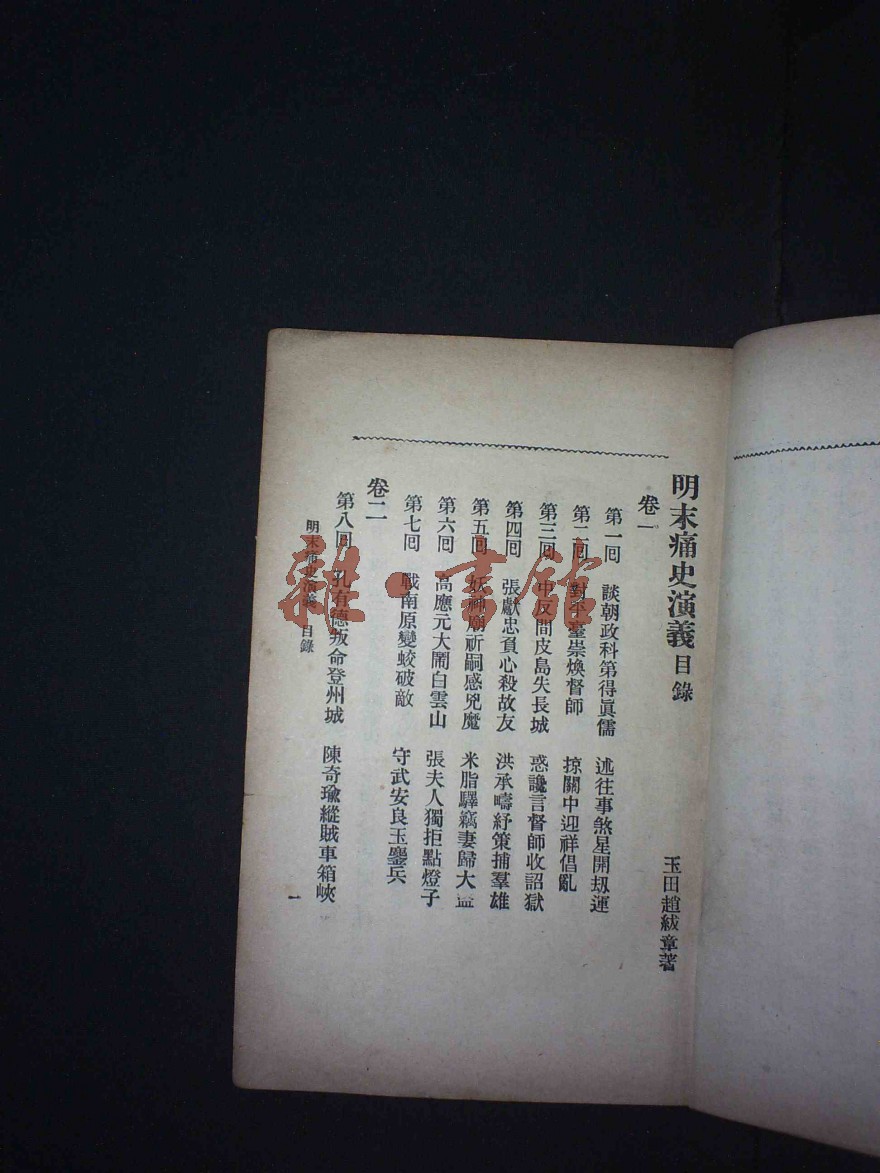 明末痛史演義目錄
玉田趙紱章著
卷一
第一回 談朝政科第得眞儒 述往事煞星開刼運
第二回 對平臺崇煥督師 掠關中迎祥倡亂
第三回 中反間皮島失長城 惑讒言督師收詔獄
第四回 張獻忠負心殺故友 洪承疇紓策捕羣雄
第五回 妖神廟祈嗣感兇魔 米脂驛竊妻歸大盜
第六回 高應元大鬧白雲山 張夫人獨拒點燈子
第七回 戰南原變蛟破敵 守武安良玉鏖兵
卷二
第八回 孔有德叛命登州城 陳奇瑜縱賊車箱峽
明末痛史演義 目錄
一
雜·書館